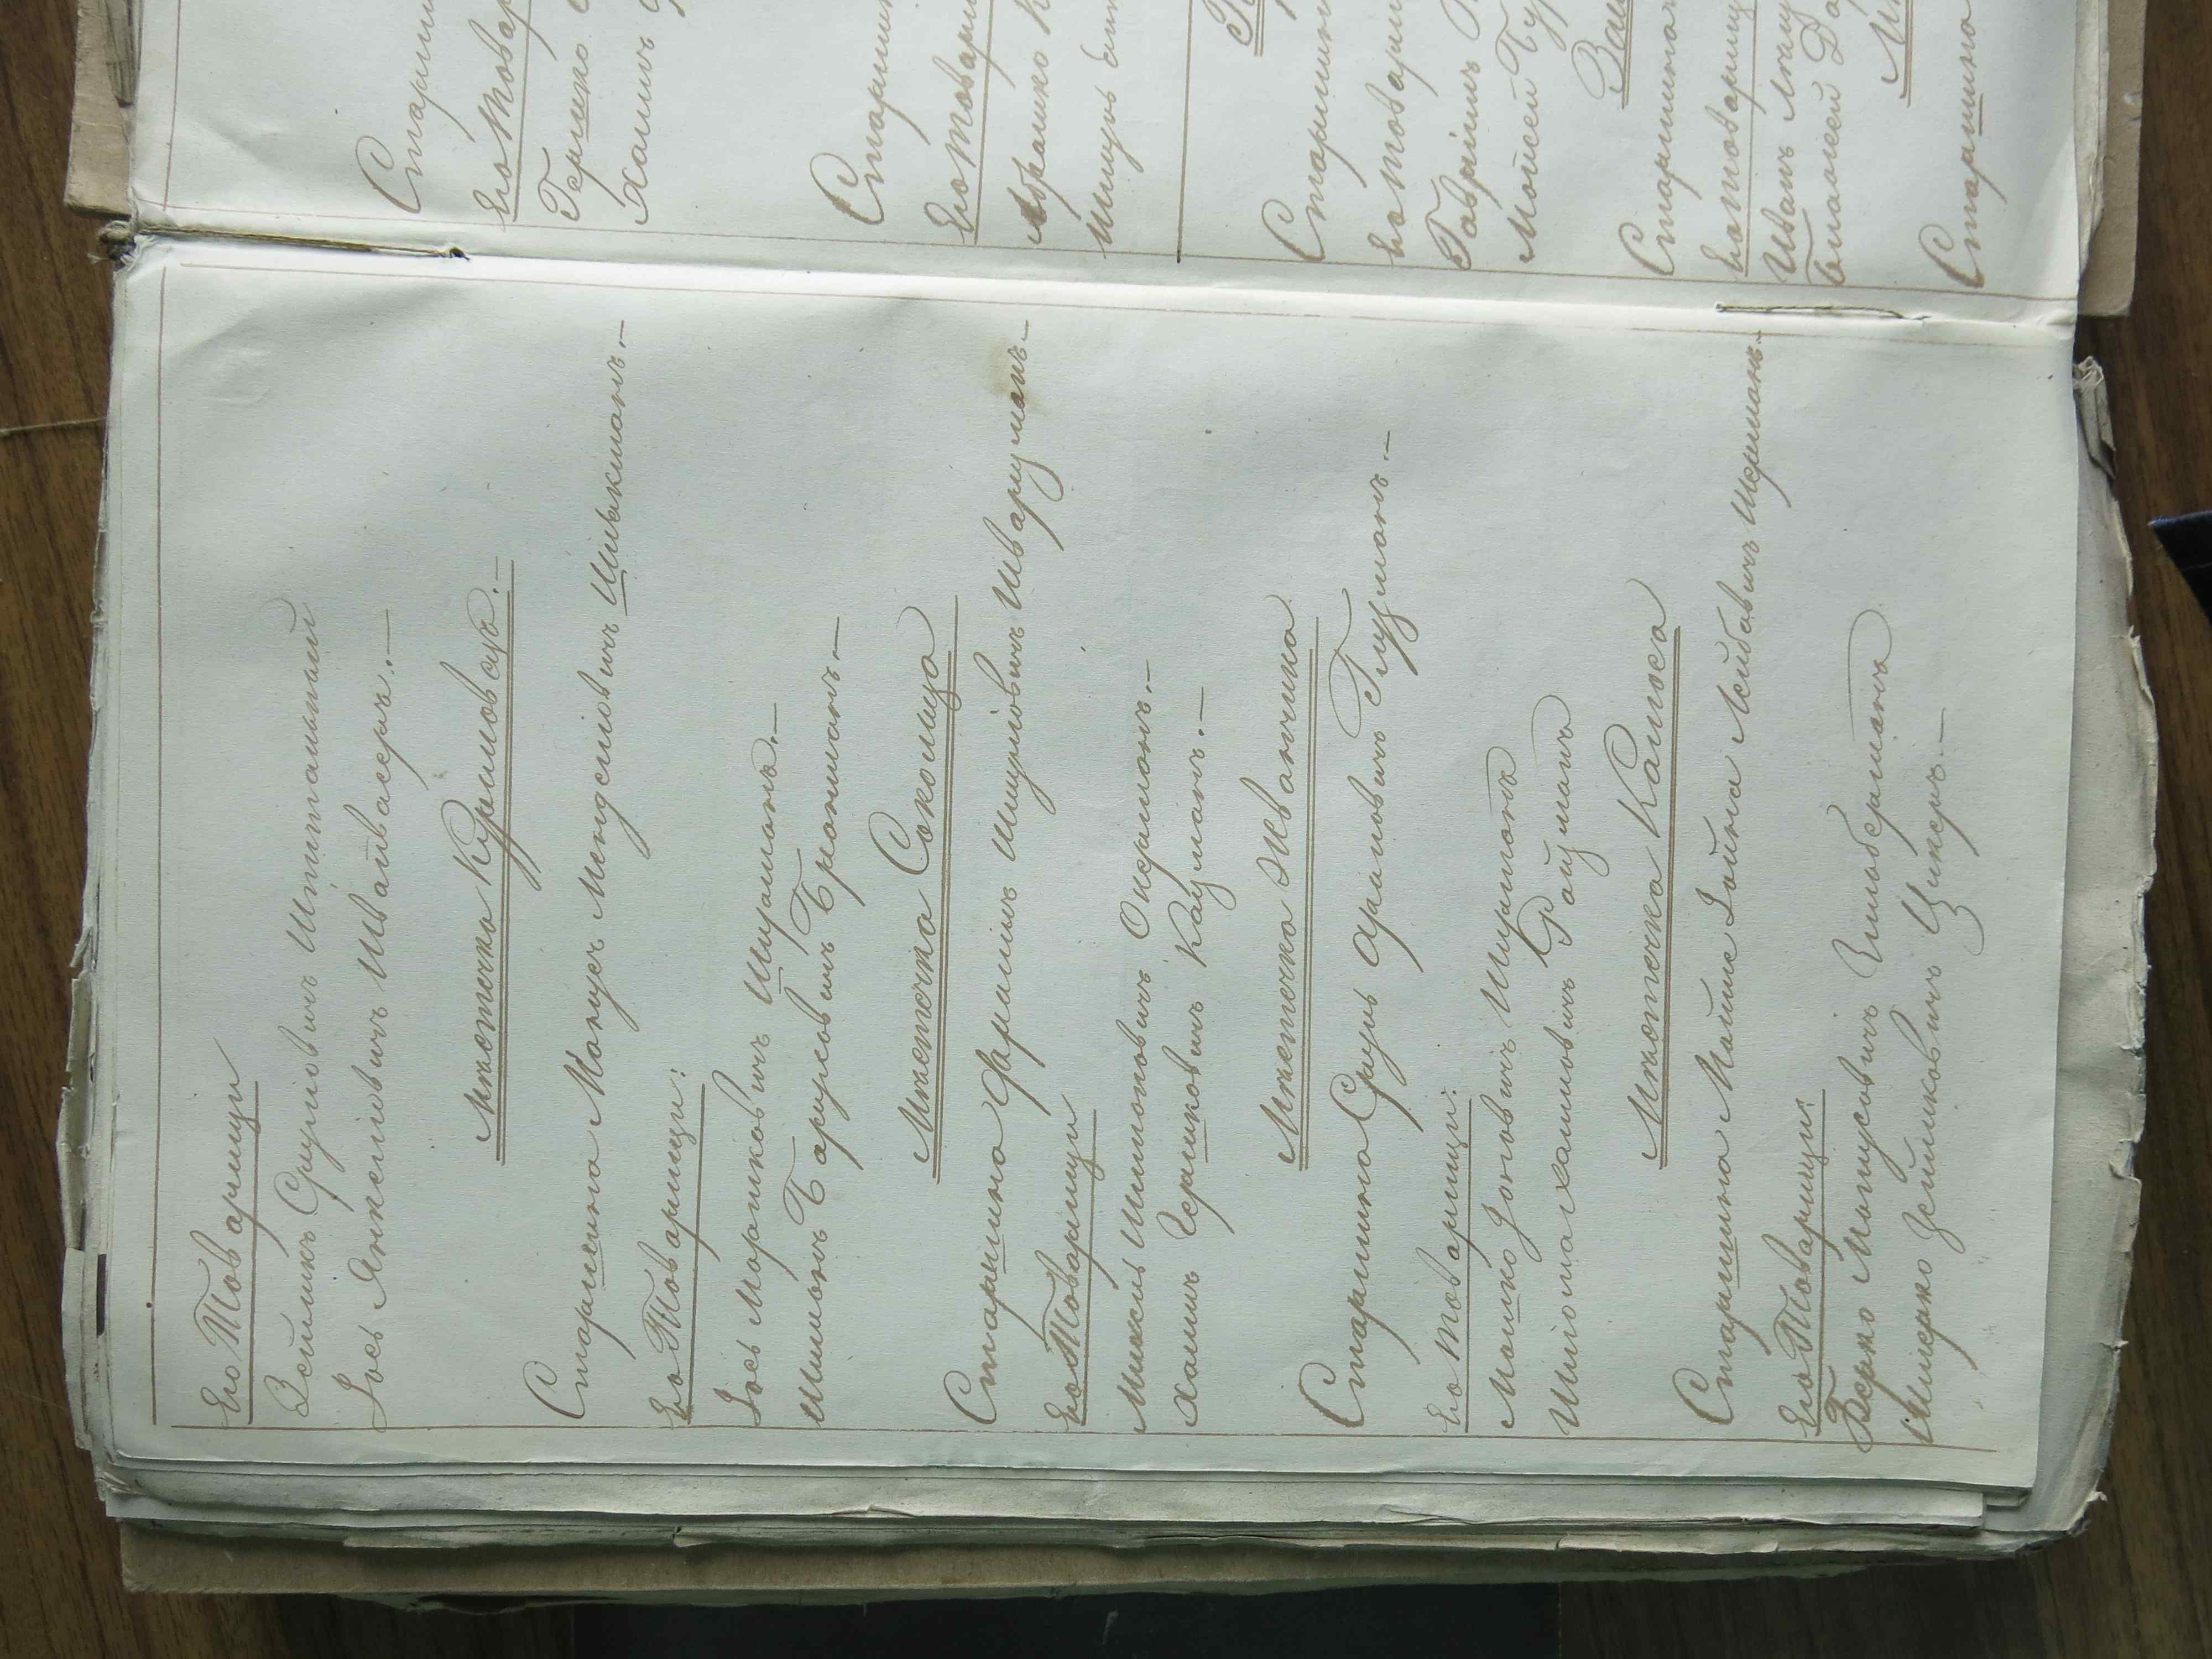 Его Товарищи
Зейликъ Срулевичъ Шпигильный
Іось Янкелевичъ Швайвасеръ.—
Мѣстечко Куриловцъ.—
Старшина Монусъ Менделіовичъ Шпикманъ.—
Его Товарищи:
Іось Мошковичъ Шурманъ.—
Шмионъ Боруховичъ Бронманъ.—
Мѣстечко Соколица
Старшина Фроимъ Шмуліовичъ Шварцманъ.—
Его Товарищи
Михель Шимоновичъ Окерманъ.—
Хаимъ Гершковичъ Кацманъ.—
Мѣстечко Жванчика
Старшина Сруль Фроимовичъ Глузманъ.—
Его Товарищи:
Мошко Іоновичъ Ширманъ
Шліома Хаимовичъ Ройзманъ
Мѣстечко Калюса
Старшина Мойше Іойна Лейбовичъ Шерманъ.—
Его Товарищи:
Берко Монусовичъ Зильберманъ
Шмерко Зейликовичъ Цикеръ.—
Старшин
Его Товар
Гершко
Хаимъ
Старшин
Его Товари
Абрамко К
Шмуль
Старшин
Его Товари
Гаврiилъ
Мойсей Бу
Старшина
Его Товарищ
Иванъ
Старшина